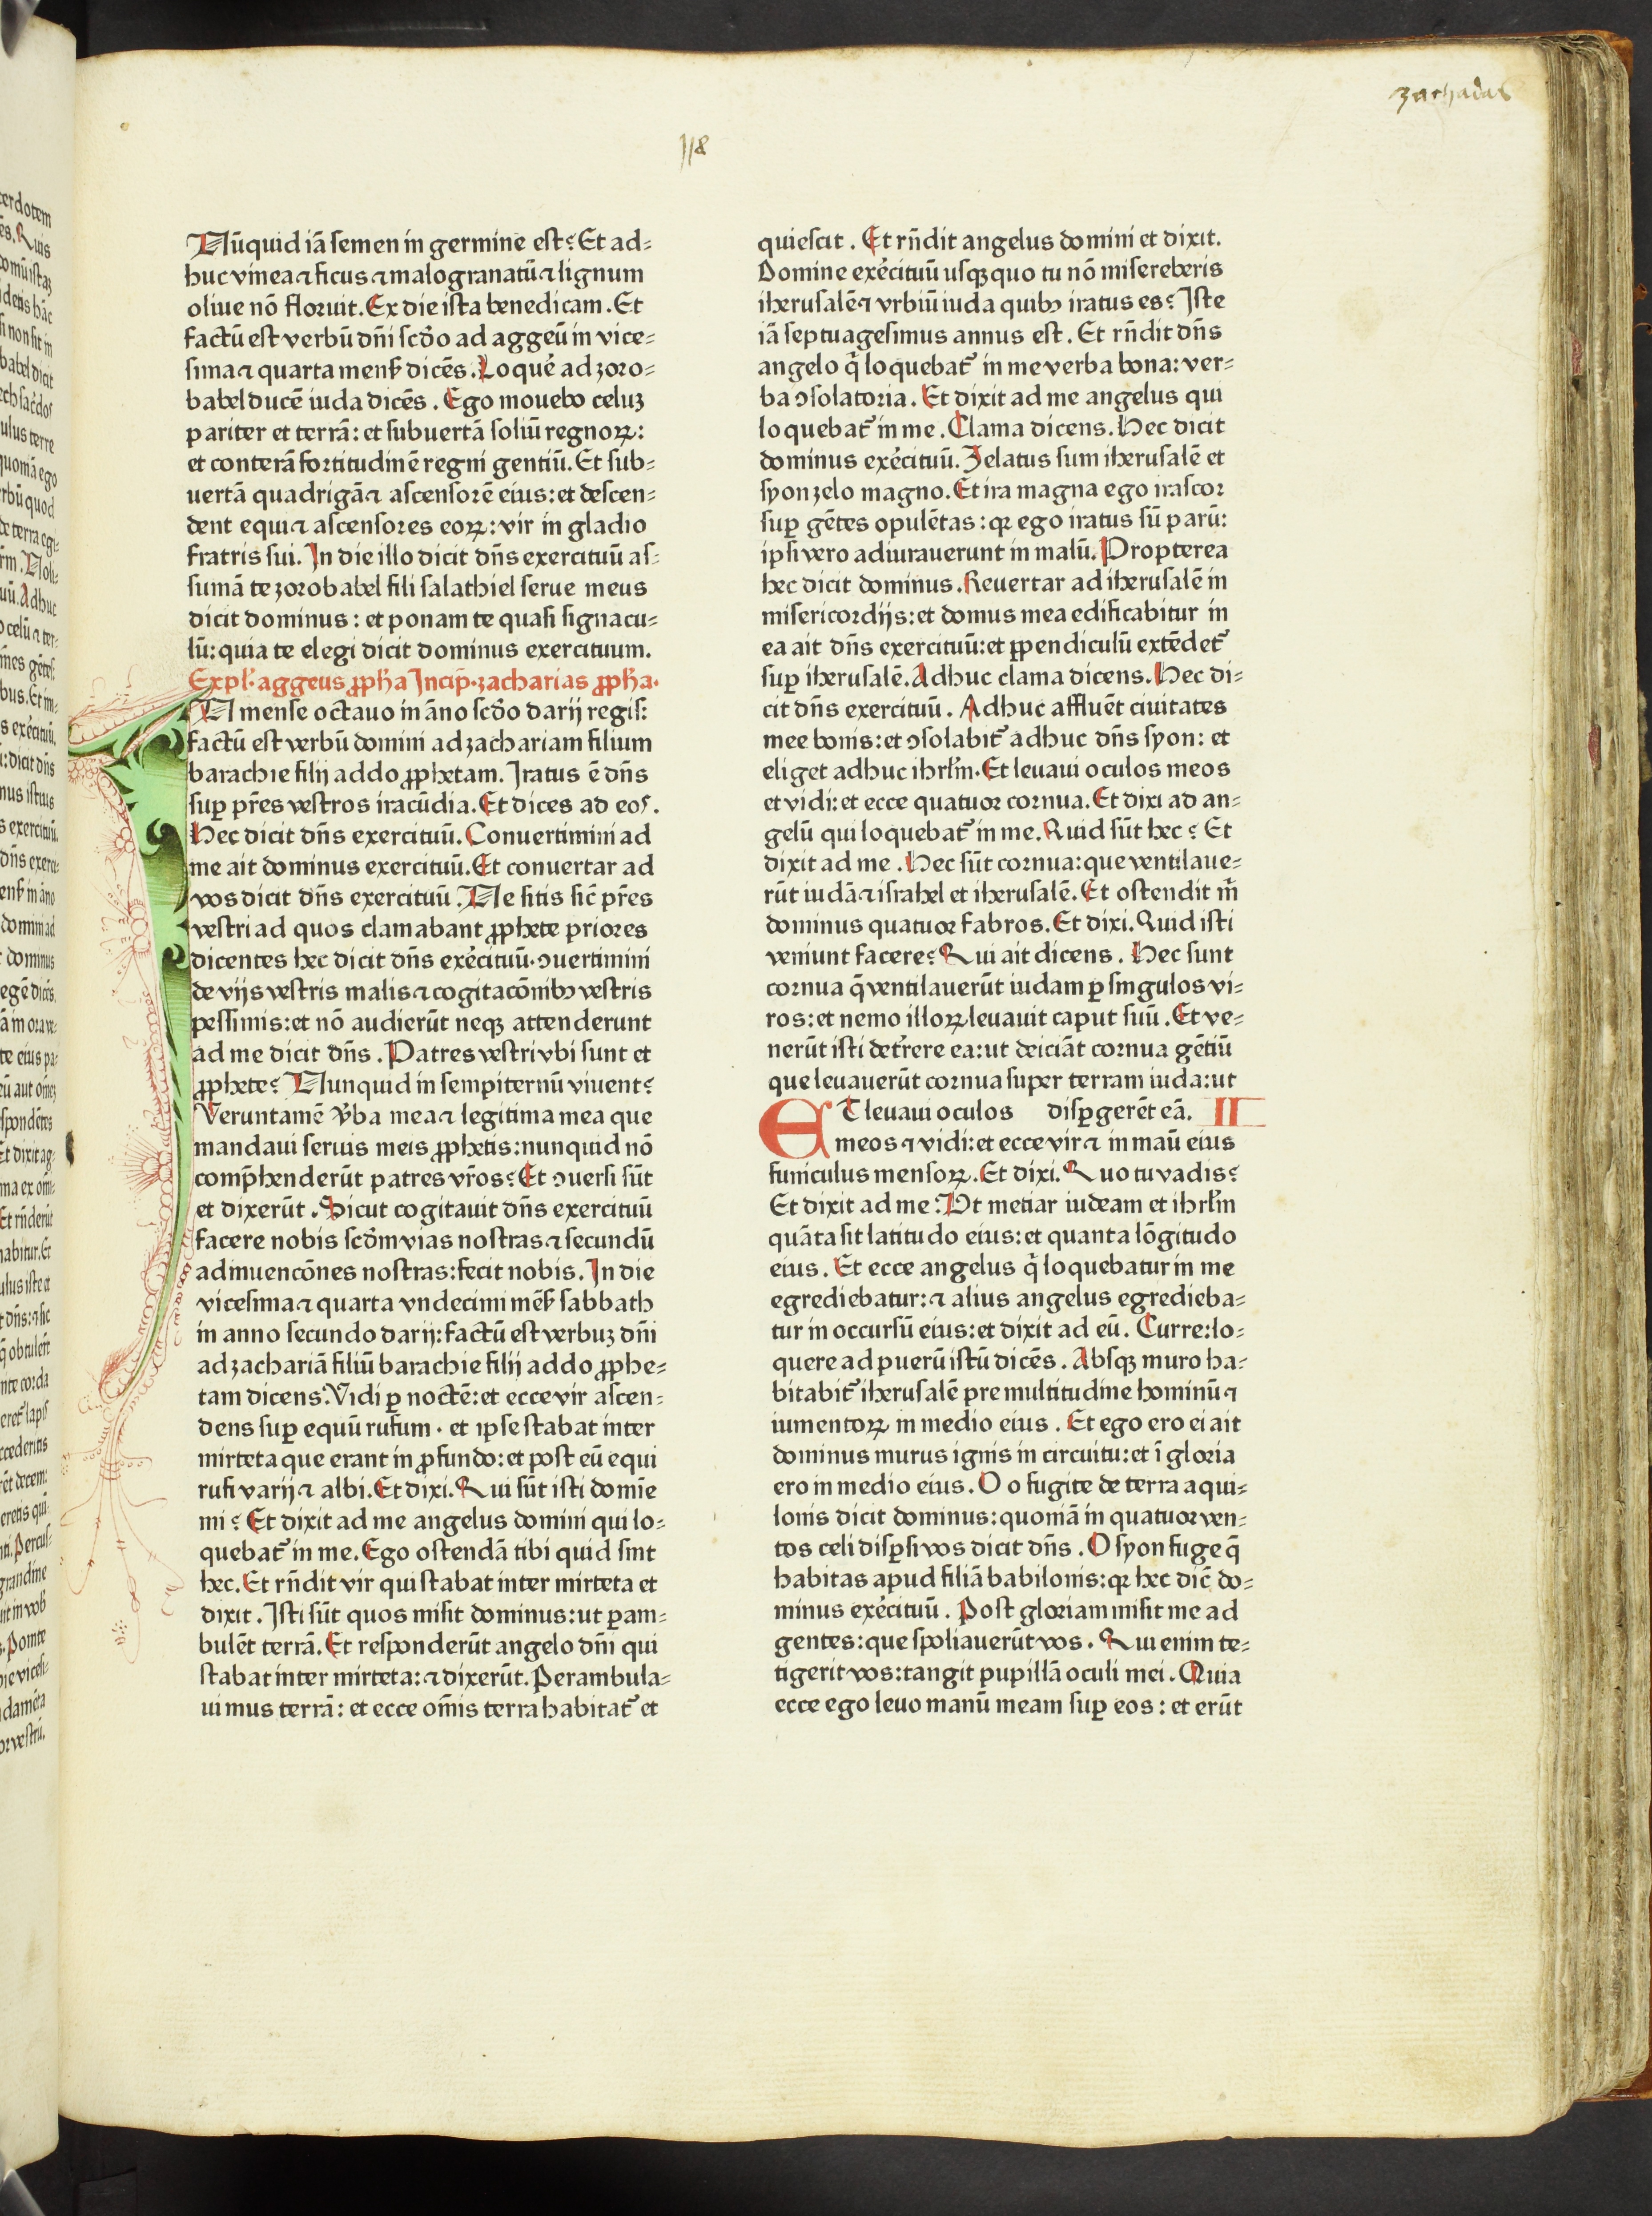 zacharias
118
Nūquid iā semen in germine est? Et ad=
huc vinea ⁊ ficus ⁊ malogranatū ⁊ lignum
oliue nō floruit. Ex die ista benedicam. Et
factū est verbū dn̄i scd̄o ad aggeū in vice=
sima ⁊ quarta mens̄ dicēs. Loquẻ ad zoro=
babel ducē iuda dicēs. Ego mouebo celuꝫ
pariter et terrā: et subuertā soliū regnoꝝ:
et conterā fortitudinē regni gentiū. Et sub=
uertā quadrigā ⁊ ascensorē eius: et descen=
dent equi ⁊ ascensores eoꝝ: vir in gladio
fratris sui. In die illo dicit dn̄s exercituū as=
sumā te zorobabel fili salathiel serue meus
dicit dominus: et ponam te quasi signacu=
lū: quia te elegi dicit dominus exercituum.
Expl̄. aggeus ꝓph̄a Incip̄. zacharias ꝓph̄a.
N mense octauo in āno scd̄o darij regis:
factū est verbū domini ad zachariam filium
barachie filij addo ꝓphetam. Iratus ē dn̄s
suꝑ pr̄es vestros iracūdia. Et dices ad eos.
Hec dicit dn̄s exercituū. Conuertimini ad
me ait dominus exercituū. Et conuertar ad
vos dicit dn̄s exercituū. Ne sitis sic̄ pr̄es
vestri ad quos clamabant ꝓphete priores
dicentes hec dicit dn̄s exẻcituū. ꝯuertimini
de vijs vestris malis ⁊ cogitacōnibꝰ vestris
pessimis: et nō audierūt neqꝫ attenderunt
ad me dicit dn̄s. Patres vestri vbi sunt et
ꝓphete? Nunquid in sempiternū viuent?
Veruntamē v̉ba mea ⁊ legitima mea que
mandaui seruis meis ꝓphetis: nunquid nō
comp̄henderūt patres vr̄os? Et ꝯuersi sūt
et dixerūt. Sicut cogitauit dn̄s exercituū
facere nobis scd̄m vias nostras ⁊ secundū
adinuencōnes nostras: fecit nobis. In die
vicesima ⁊ quarta vndecimi mēs̄ sabbath
in anno secundo darij: factū est verbuꝫ dn̄i
ad zachariā filiū barachie filij addo ꝓphe=
tam dicens. Vidi ꝑ noctē: et ecce vir ascen=
dens suꝑ equū rufum. et ipse stabat inter
mirteta que erant in ꝓfundo: et post eū equi
rufi varij ⁊ albi. Et dixi. Qui sūt isti domīe
mi? Et dixit ad me angelus domini qui lo=
quebat᷑ in me. Ego ostendā tibi quid sint
hec. Et rn̄dit vir qui stabat inter mirteta et
dixit. Isti sūt quos misit dominus: ut ꝑam=
bulēt terrā. Et responderūt angelo dn̄i qui
stabat inter mirteta: ⁊ dixerūt. Perambula=
uimus terrā: et ecce om̄is terra habitat᷑ et
quiescit. Et rn̄dit angelus domini et dixit.
Domine exẻcituū usqꝫquo tu nō misereberis
iherusalē ⁊ vrbiū iuda quibꝰ iratus es? Iste
iā septuagesimus annus est. Et rn̄dit dn̄s
angelo q̄ loquebat᷑ in me verba bona: ver=
ba ꝯsolatoria. Et dixit ad me angelus qui
loquebat᷑ in me. Clama dicens. Hec dicit
dominus exẻcituū. Zelatus sum iherusalē et
syon zelo magno. Et ira magna ego irascor
suꝑ gētes opulētas: qꝛ ego iratus sū parū:
ipsi vero adiurauerunt in malū. Propterea
hec dicit dominus. Reuertar ad iherusalē in
misericordijs: et domus mea edificabitur in
ea ait dn̄s exercituū: et ꝑpendiculū extēdet᷑
suꝑ iherusalē. Adhuc clama dicens. Hec di=
cit dn̄s exercituū. Adhuc affluēt ciuitates
mee bonis: et ꝯsolabit᷑ adhuc dn̄s syon: et
eliget adhuc ihrl̄m. Et leuaui oculos meos
et vidi: et ecce quatuor cornua. Et dixi ad an=
gelū qui loquebat᷑ in me. Quid sūt hec? Et
dixit ad me. Hec sūt cornua: que ventilaue=
rūt iudā ⁊ israhel et iherusalē. Et ostendit m̄
dominus quatuor fabros. Et dixi. Quid isti
veniunt facere? Qui ait dicens. Hec sunt
cornua q̄ ventilauerūt iudam ꝑ singulos vi=
ros: et nemo illoꝝ leuauit caput suū. Et ve=
nerūt isti det᷑rere ea: ut deiciāt cornua gētiū
que leuauerūt cornua super terram iuda: ut
ET leuaui oculos disꝑgerēt eā. II
meos ⁊ vidi: et ecce vir ⁊ in maū eius
funiculus mensoꝝ. Et dixi. Quo tu vadis?
Et dixit ad me: Ut metiar iudeam et ihrl̄m
quāta sit latitudo eius: et quanta lōgitudo
eius. Et ecce angelus q̄ loquebatur in me
egrediebatur: ⁊ alius angelus egredieba=
tur in occursū eius: et dixit ad eū. Curre: lo=
quere ad puerū istū dicēs. Absqꝫ muro ha=
bitabit᷑ iherusalē pre multitudine hominū ⁊
iumentoꝝ in medio eius. Et ego ero ei ait
dominus murus ignis in circuitu: et ī gloria
ero in medio eius. O o fugite de terra aqui=
lonis dicit dominus: quoniā in quatuor ven=
tos celi disꝑsi vos dicit dn̄s. O syon fuge q̄
habitas apud filiā babilonis: qꝛ hec dic̄ do=
minus exẻcituū. Post gloriam misit me ad
gentes: que spoliauerūt vos. Qui enim te=
tigerit vos: tangit pupillā oculi mei. Quia
ecce ego leuo manū meam suꝑ eos: et erūt